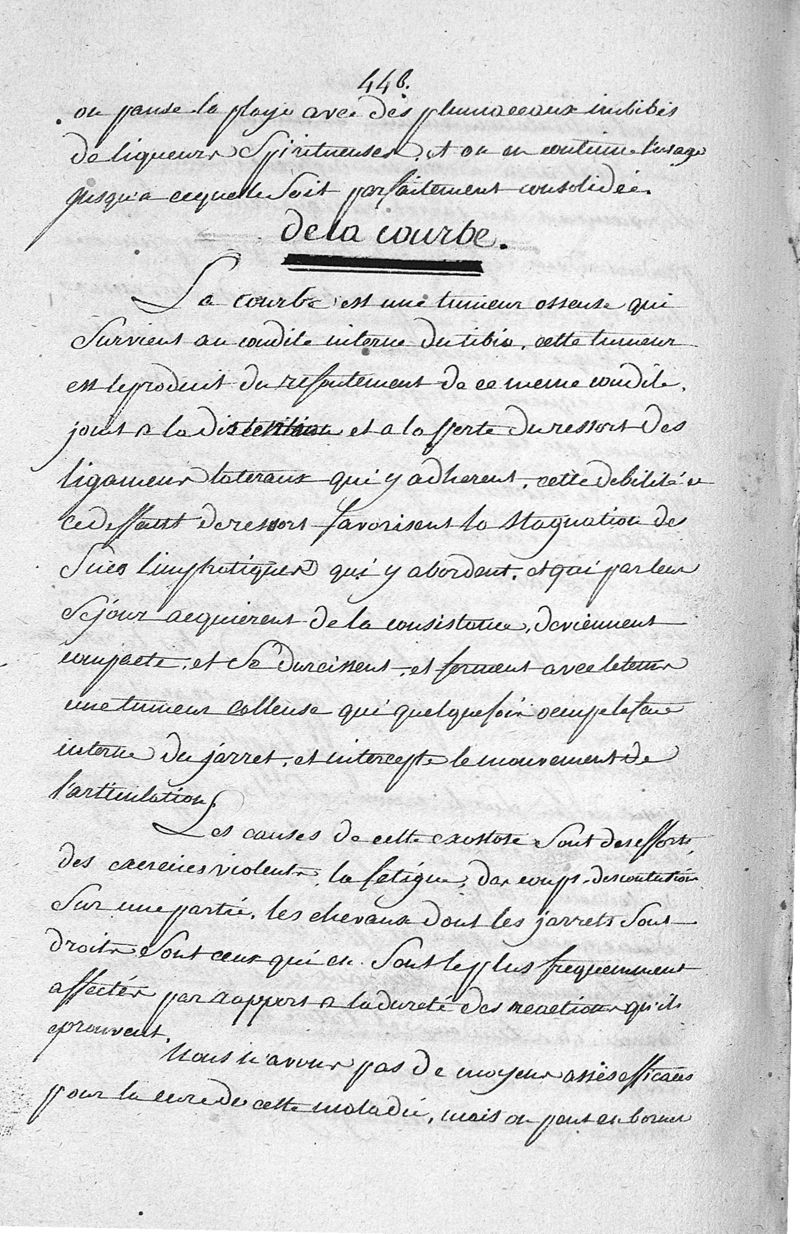 448.
on panse la playe avec des plumaceaux imbibés
de liqueurs Spiritueuses, et on en continue l'usage
jusqu'a cequelle Soit parfaitement consolidée.
de la courbe.
La courbe est une tumeur osseuse qui
Survient au condile interne du tibia, cette tumeur
est le produit du refoulement de ce meme condile,
joint a la distention et a la perte du ressort des
ligamens lateraux qui y adherent, cette debilité et
ce deffaut de ressort favorisent la Stagnation des
Sucs limphatiques qui y abordent, et qui par leur
Sejour acquierent de la consistance, deviennent
compacte, et Se durcissent, et forment avec le tems
une tumeur calleuse qui quelquefois occupe la face
interne du jarret, et intercepte le mouvement de
l'articulation.
Les causes de cette exostose Sont des efforts,
des exercices violents, la fatigue, des coups, des contutions
Sur une partie, les chevaux dont les jarrets Sont
droits Sont ceux qui en Sont le plus frequemment
affectés par rapport a la dureté des reactions qu'ils
eprouvent.
Nous n'avons pas de moyens assés efficaces
pour la cure de cette maladie, mais on peut en borner